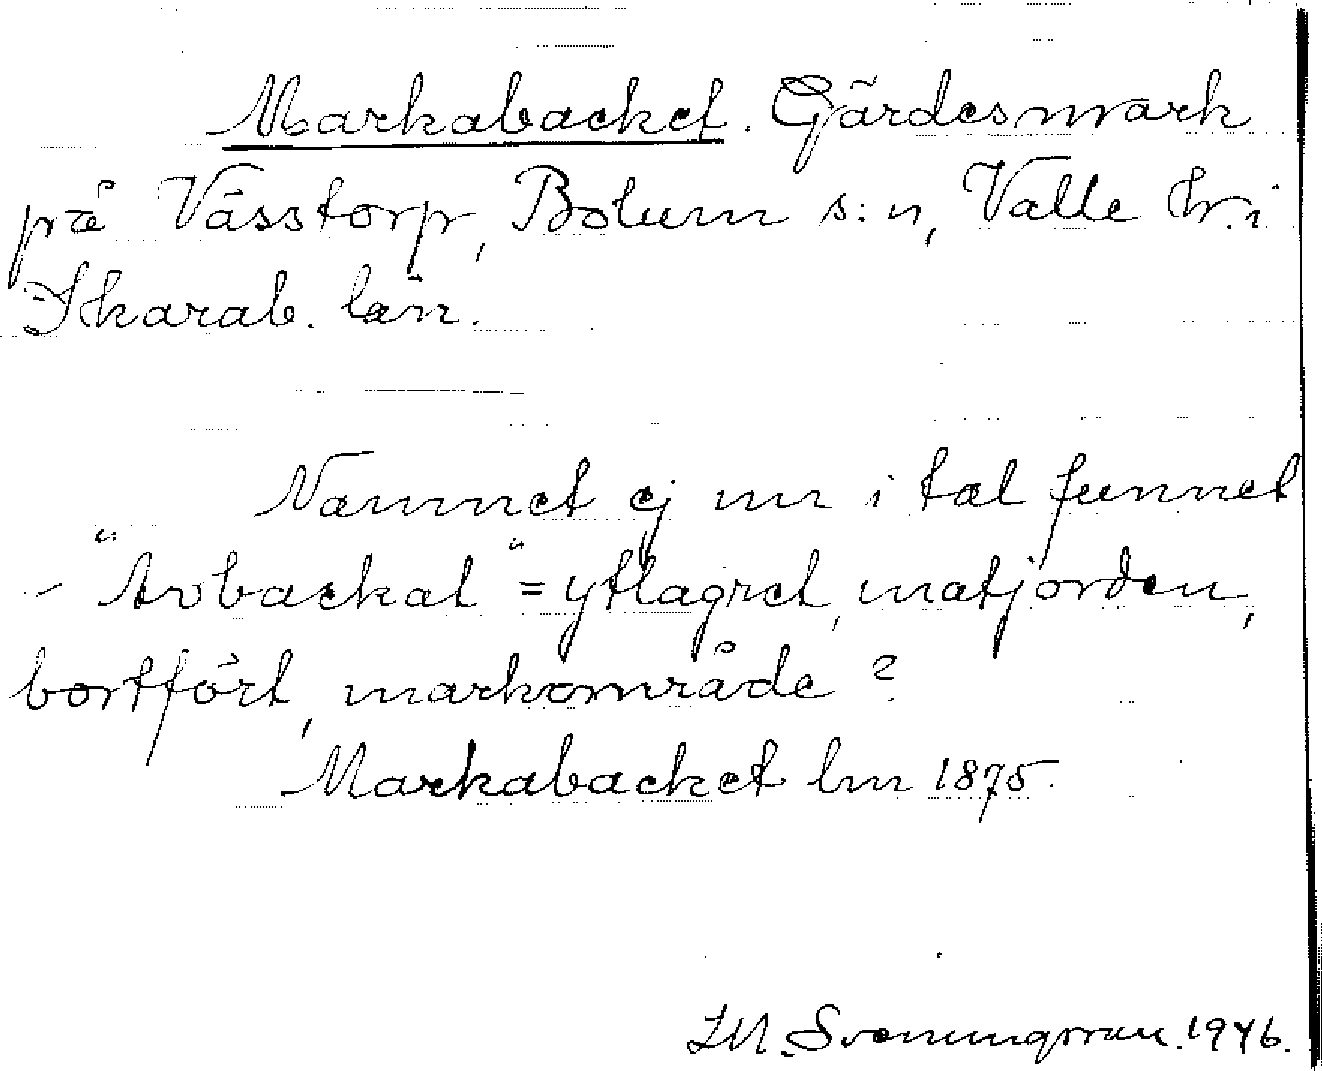 Markabacket. Gärdesmark
på Vässtorp, Bolum s:n, Valle hr. i
Skarab. län.
Namnet ej nu i tal funnet
- "Avbackat" = ytlagret, matjorden,
bortfört, markområde?
Markabacket lm 1875.
Svenungsson. 1946.